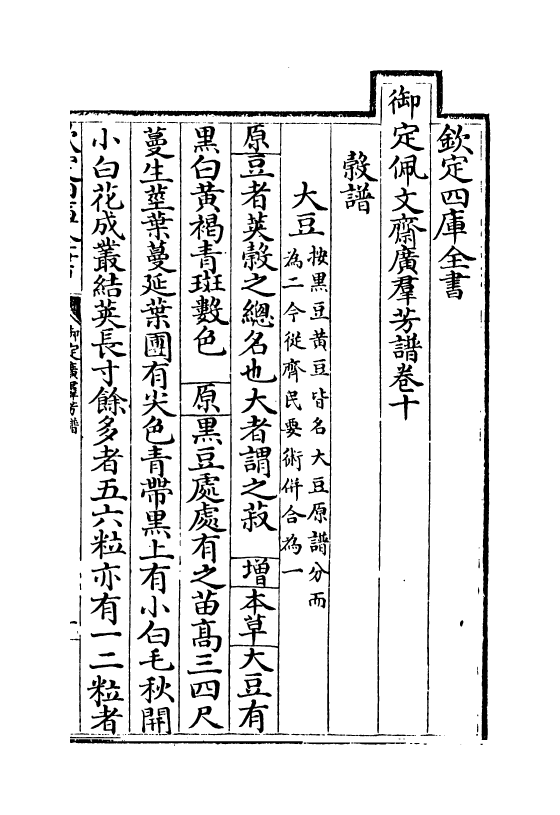 欽定四庫全書
御定佩文齋廣羣芳譜卷十
穀譜
大豆按黑豆黄豆皆名大豆原譜分而
為二今從齊民要術併合為一
原豆者莢穀之總名也大者謂之菽 增本草大豆有
黑白黄褐青斑數色 原黑豆處處有之苗髙三四尺
蔓生莖葉蔓延葉團有尖色青帶黑上有小白毛秋開
小白花成叢結莢長寸餘多者五六粒亦有一二粒者
御定廣羣芳譜
一